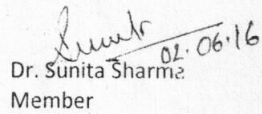 02.06.16
Dr. Sunita Sharma
Member